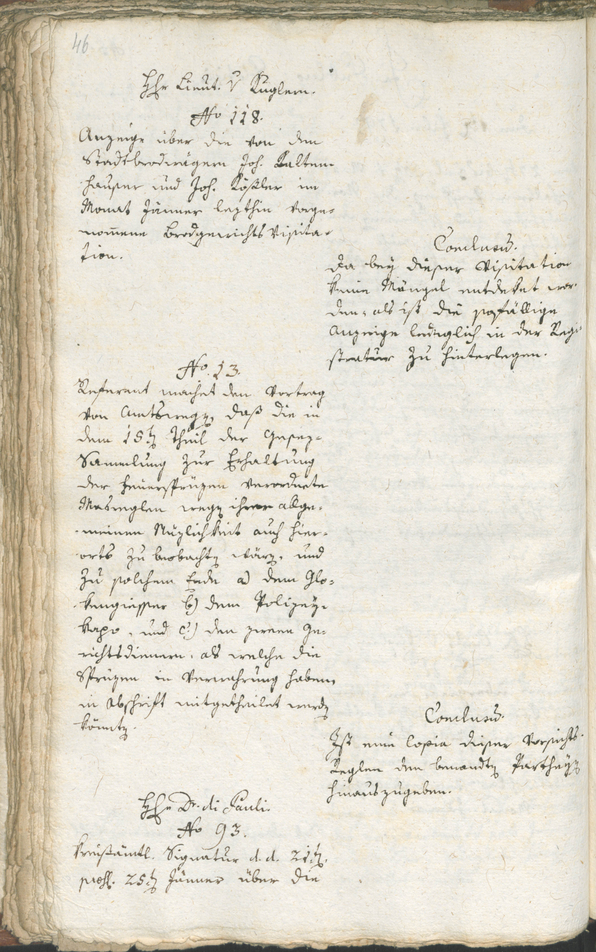 46
Hhr Lieut. v Kuglern.
No 118.
Anzeige über die von den
Stadtbrodwägern Joh. Kalten-
hauser und Joh. Kößler im
Monat Jänner letzthin vorge-
nomene Brodgewichts Visita-
tion.
Conclusum.
Da bey dieser Visitation
keine Mängel entdeket wor-
den; als ist die
Anzeige lediglich in der Regi-
stratur zu hinterlegen.
No. 13.
Referent machet den Vortrag
von Amtswegen, daß die in
dem 15ten Theil der Gesez-
Sammlung zur Erhaltung
der Feuersprüzen verordnete
Masreglen wegen ihrer allge-
meinen Nüzlichkeit auch hier-
orts zu beobachten wären, und
zu solchem Ende a) dem Glo-
kengiesser b) dem Polizey-
kapo, und c) den zween Ge-
richtsdienern, als welche die
Sprüzen in Verwahrung haben,
in Abschrift mitgetheilet werden
könnte.
Conclusum.
Ist eine Copia dieser Vorsichts-
Reglen den benandten Partheyen
hinauszugeben.
Hhr Dr. di Pauli.
No 93.
Kreisämtl. Signatur d. d. 21ten
präs. 25ten Jänner über die